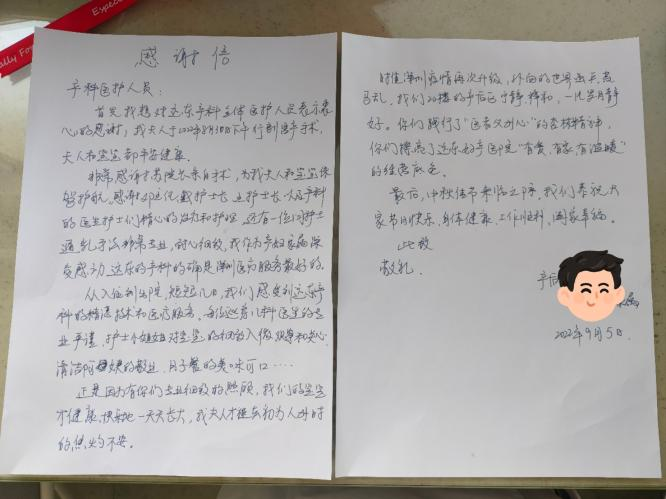 感谢信
产科医护人员：
首先我想对远东产科全体医护人员表示衷
心的感谢，我夫人于2022年8月30日下午行剖宫产手术，
夫人和宝宝都平安健康。
非常感谢 院长亲自手术，为我夫人和宝宝保
驾护航。感谢 主任、戴护士长、 护士长以及产科
的医生护士们精心的治疗和护理，还有一位 护士
通乳手法非常专业，耐心细致，我作为产妇家属深
受感动，远东的产科的确是深圳医疗服务最好的。
从入住到出院，短短几日，我们感受到远东产
科的精湛技术和医疗服务。每位 儿科医生的专
业严谨，护士小姐姐对宝宝的 入微 和关心，
清洁阿姨的敬业，月子餐的美味可口……
正是因为有你们专业细致的照顾，我们的宝宝
才健康、快乐地一天天长大，我夫人才 初为人母时
的焦灼不安。
时值深圳疫情再次升级，外面的世界兵荒
马乱，我们20楼的产后区宁静、祥和，一片岁月静
好。你们践行了“医者父母心”的 精神，
你们擦亮了远东妇产医院“有爱、有家、有温暖”
的经营底色。
最后，中秋佳节来临之际，我们恭祝大
家节日快乐、身体健康、工作顺利、阖家幸福。
此致
敬礼
产
属
2022年9月5日.
ally Fo
Espec